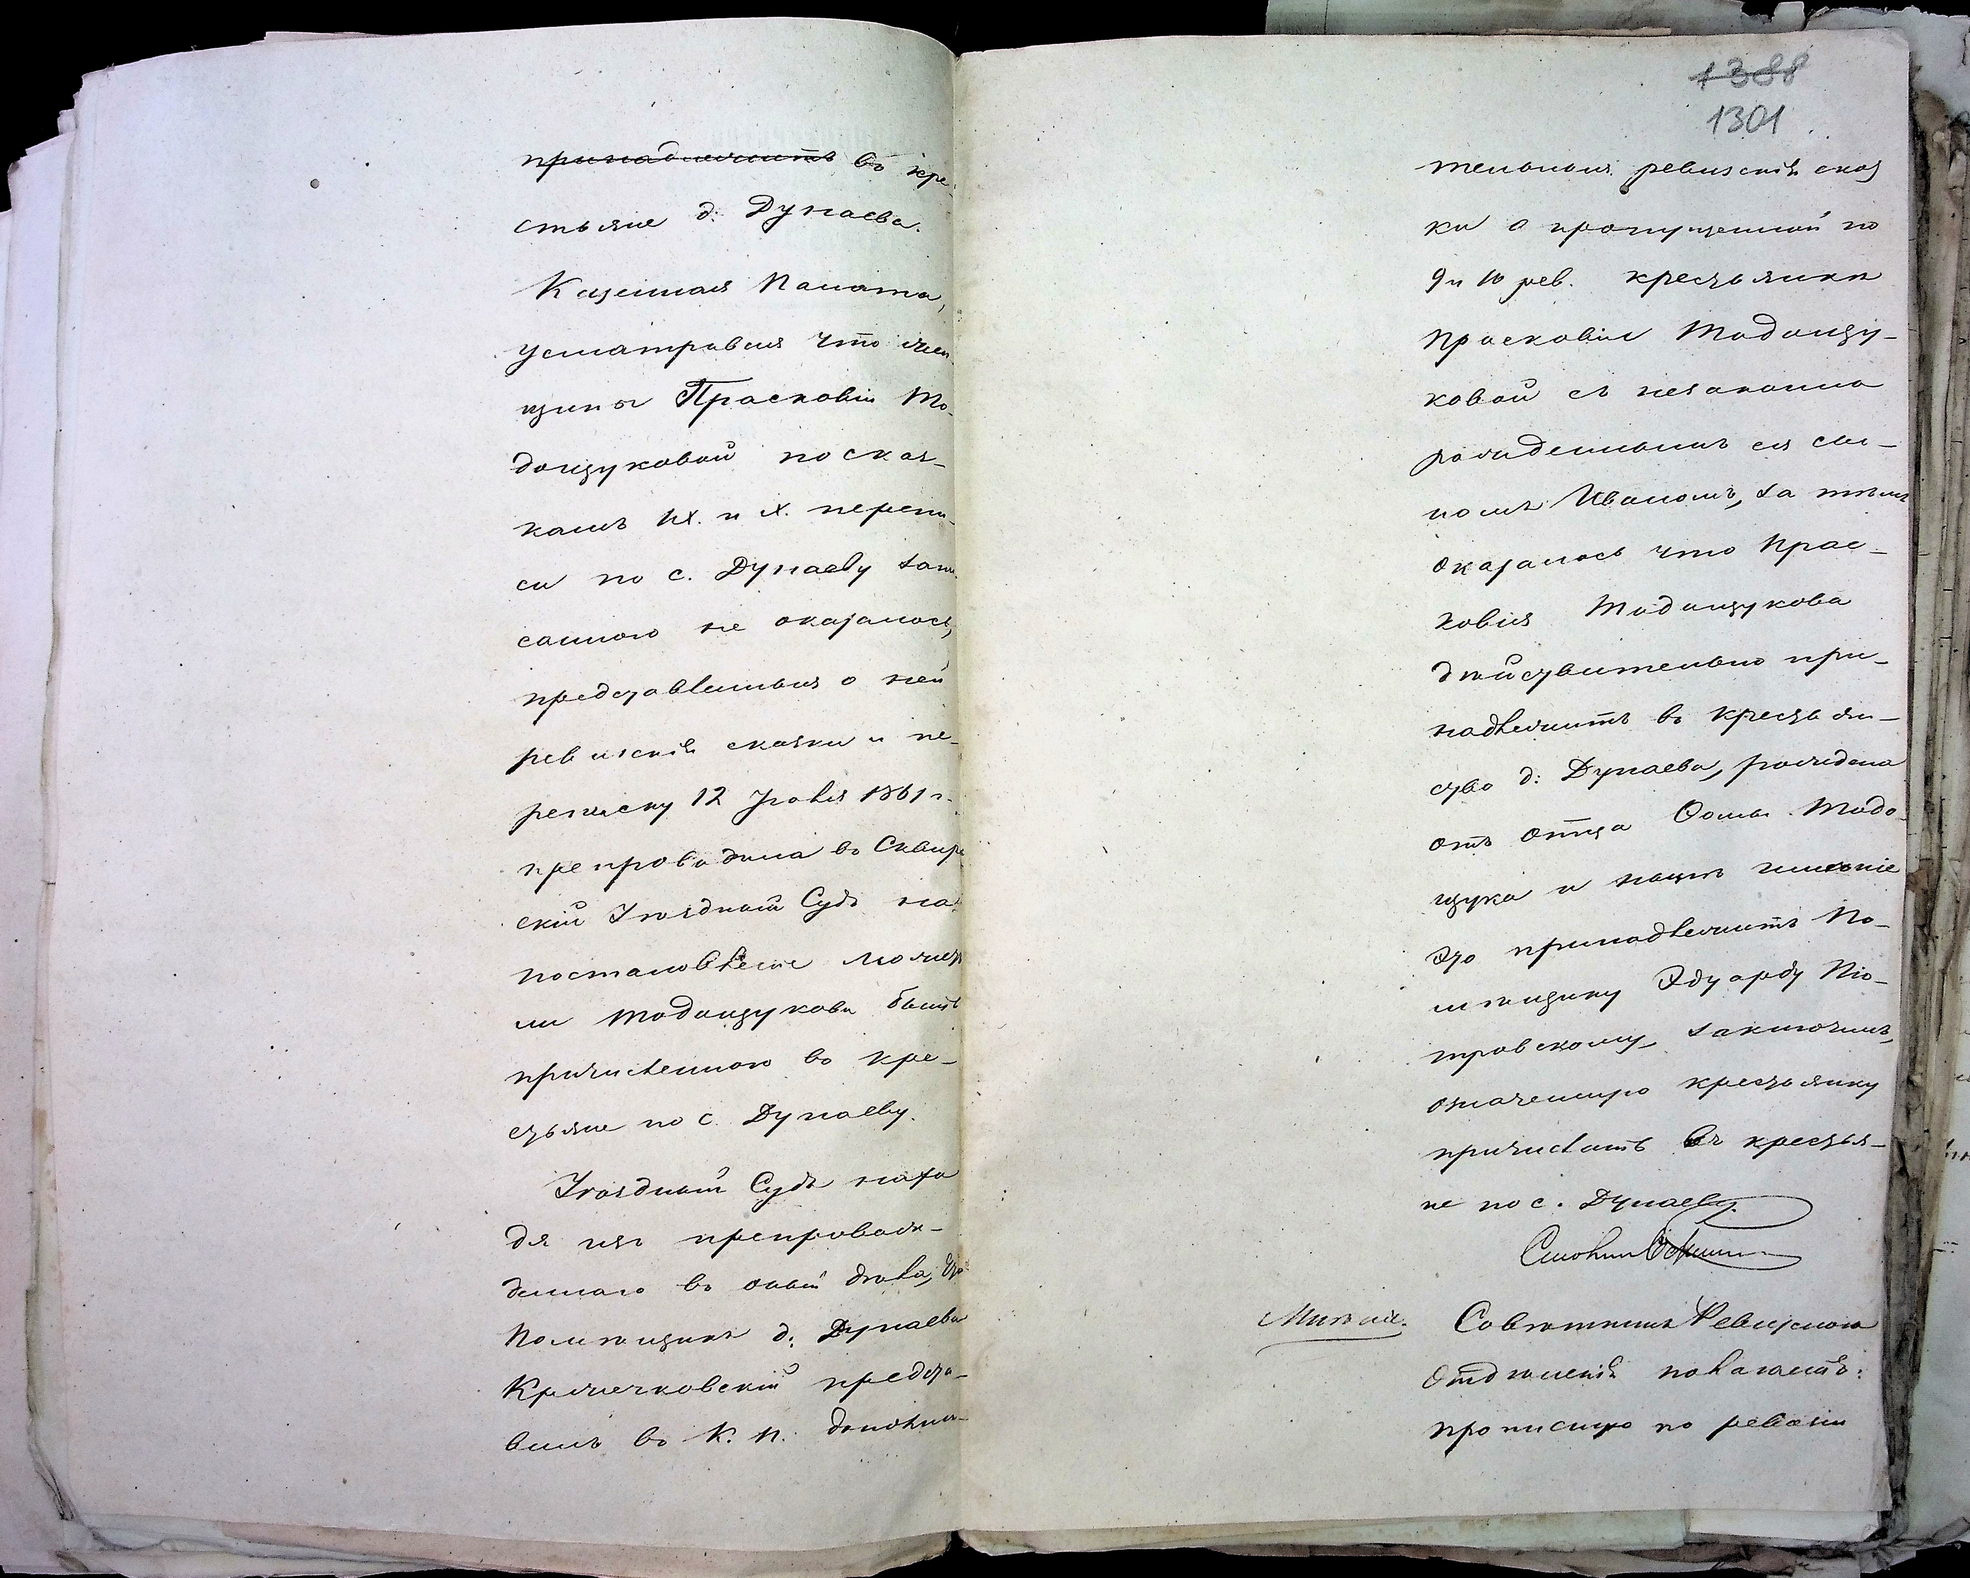 принадлежитъ въ кре-
стьяне д: Дунаева.
Казенная Палата,
усматривая что жен-
щины Прасковіи То-
дощуковой по сказ-
камъ IX. и X. перепи-
си по с. Дунаеву запи-
санною не оказалось,
представленныя о ней
ревизскія сказки и пе-
реписку 12 Іюля 1861 г.
препроводила въ Сквир-
скій Уѣздный Судъ на
постановленіе можетъ
ли Тодощукова быть
причисленною въ кре-
стьяне по с. Дунаеву.
Уѣздный Судъ нахо
дя изъ препровож-
деннаго въ оный дѣла, что
Помѣщикъ д: Дунаева
Кржечковскій предста-
вилъ въ К. П. дополни-
1388
1301
тельныя ревизскія сказ
ки о пропущенной по
9 и 10 рев. крестьянки
Прасковіи Тодощу-
ковой съ незаконно
рожденнымъ ея сы-
номъ Иваномъ, за тѣмъ
оказалось что Прас-
ковія Тодощукова
дѣйствительно при-
надлежитъ въ крестьян-
ство д: Дунаева, рождена
отъ отца Ѳомы Тодо-
щука и нынѣ имѣніе
это принадлежитъ По-
мѣщику Эдуарду Піо-
тровскому, заключилъ,
означенную крестьянку
причислить въ крестья-
не по с. Дунаеву.
Мнѣніе. Совѣтникъ Ревизскаго
Отдѣленія полагаетъ:
прописную по ревизіи